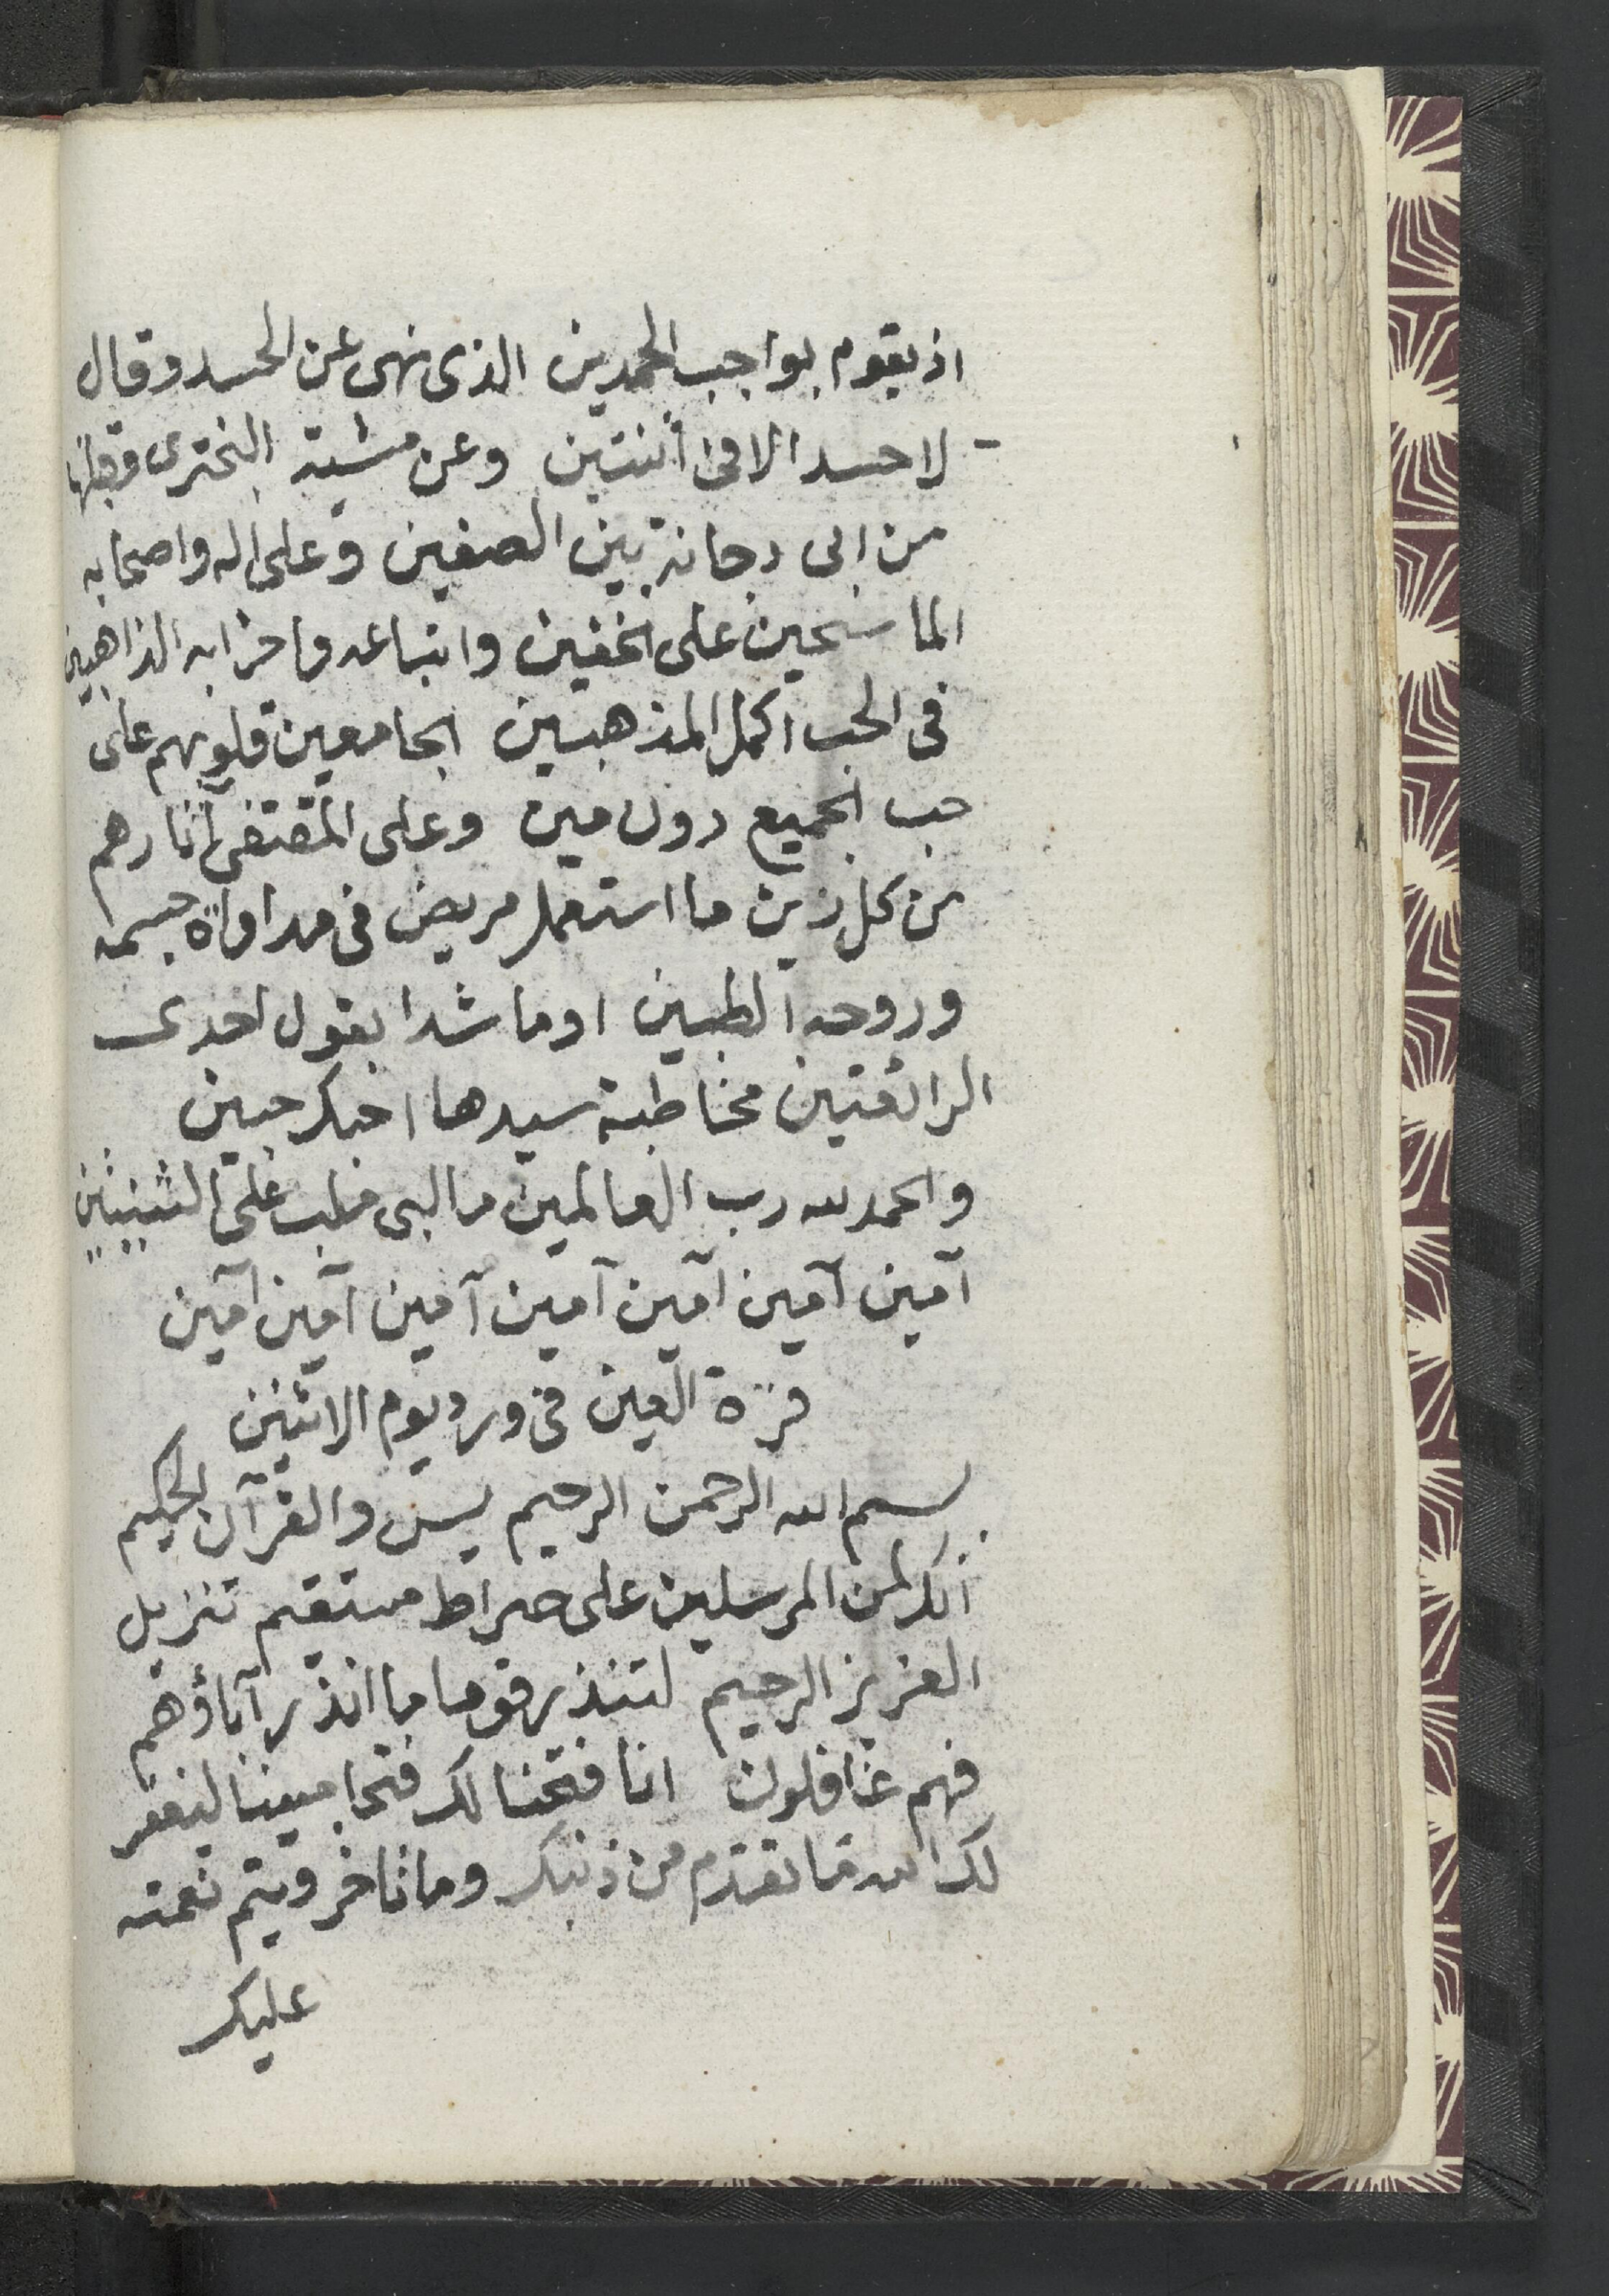 اذ يقوم بواجب الحمدين الذى نهى عن الحسد وقال
لا حسد الا فى اثنتين وعن مشية التبخترى وقبلها
من ابى دجانة بين الصفين وعلى اله واصحابه
الماسحين على الخفين واتباعه واحزابه الذاهبين
فى الحب اكمل المذهبين الجامعين قلوبهم على
حب الجميع دون مين وعلى المقتفى آثارهم
من كل زين ما استعمل مريض فى مداواة جسمه
وروحه الطبين او ما شدا بقول احدى
الرائقتين مخاطبة سيدها احبك حبين
والحمد لله رب العالمين ما لبى ملب على الثنيتين
آمين آمين آمين آمين آمين آمين آمين
قرة العين فى ورد يوم الاثنين
بسم الله الرحمن الرحيم يس والقرآن الحكيم
انك لمن المرسلين على صراط مستقيم تنزيل
العزيز الرحيم لتنذر قوما ما انذر آباؤهم
فهم غافلون انا فتحنا لك فتحا مبينا ليغفر
لك الله ما تقدم من ذنبك وما تاخر ويتم نعمته
عليك